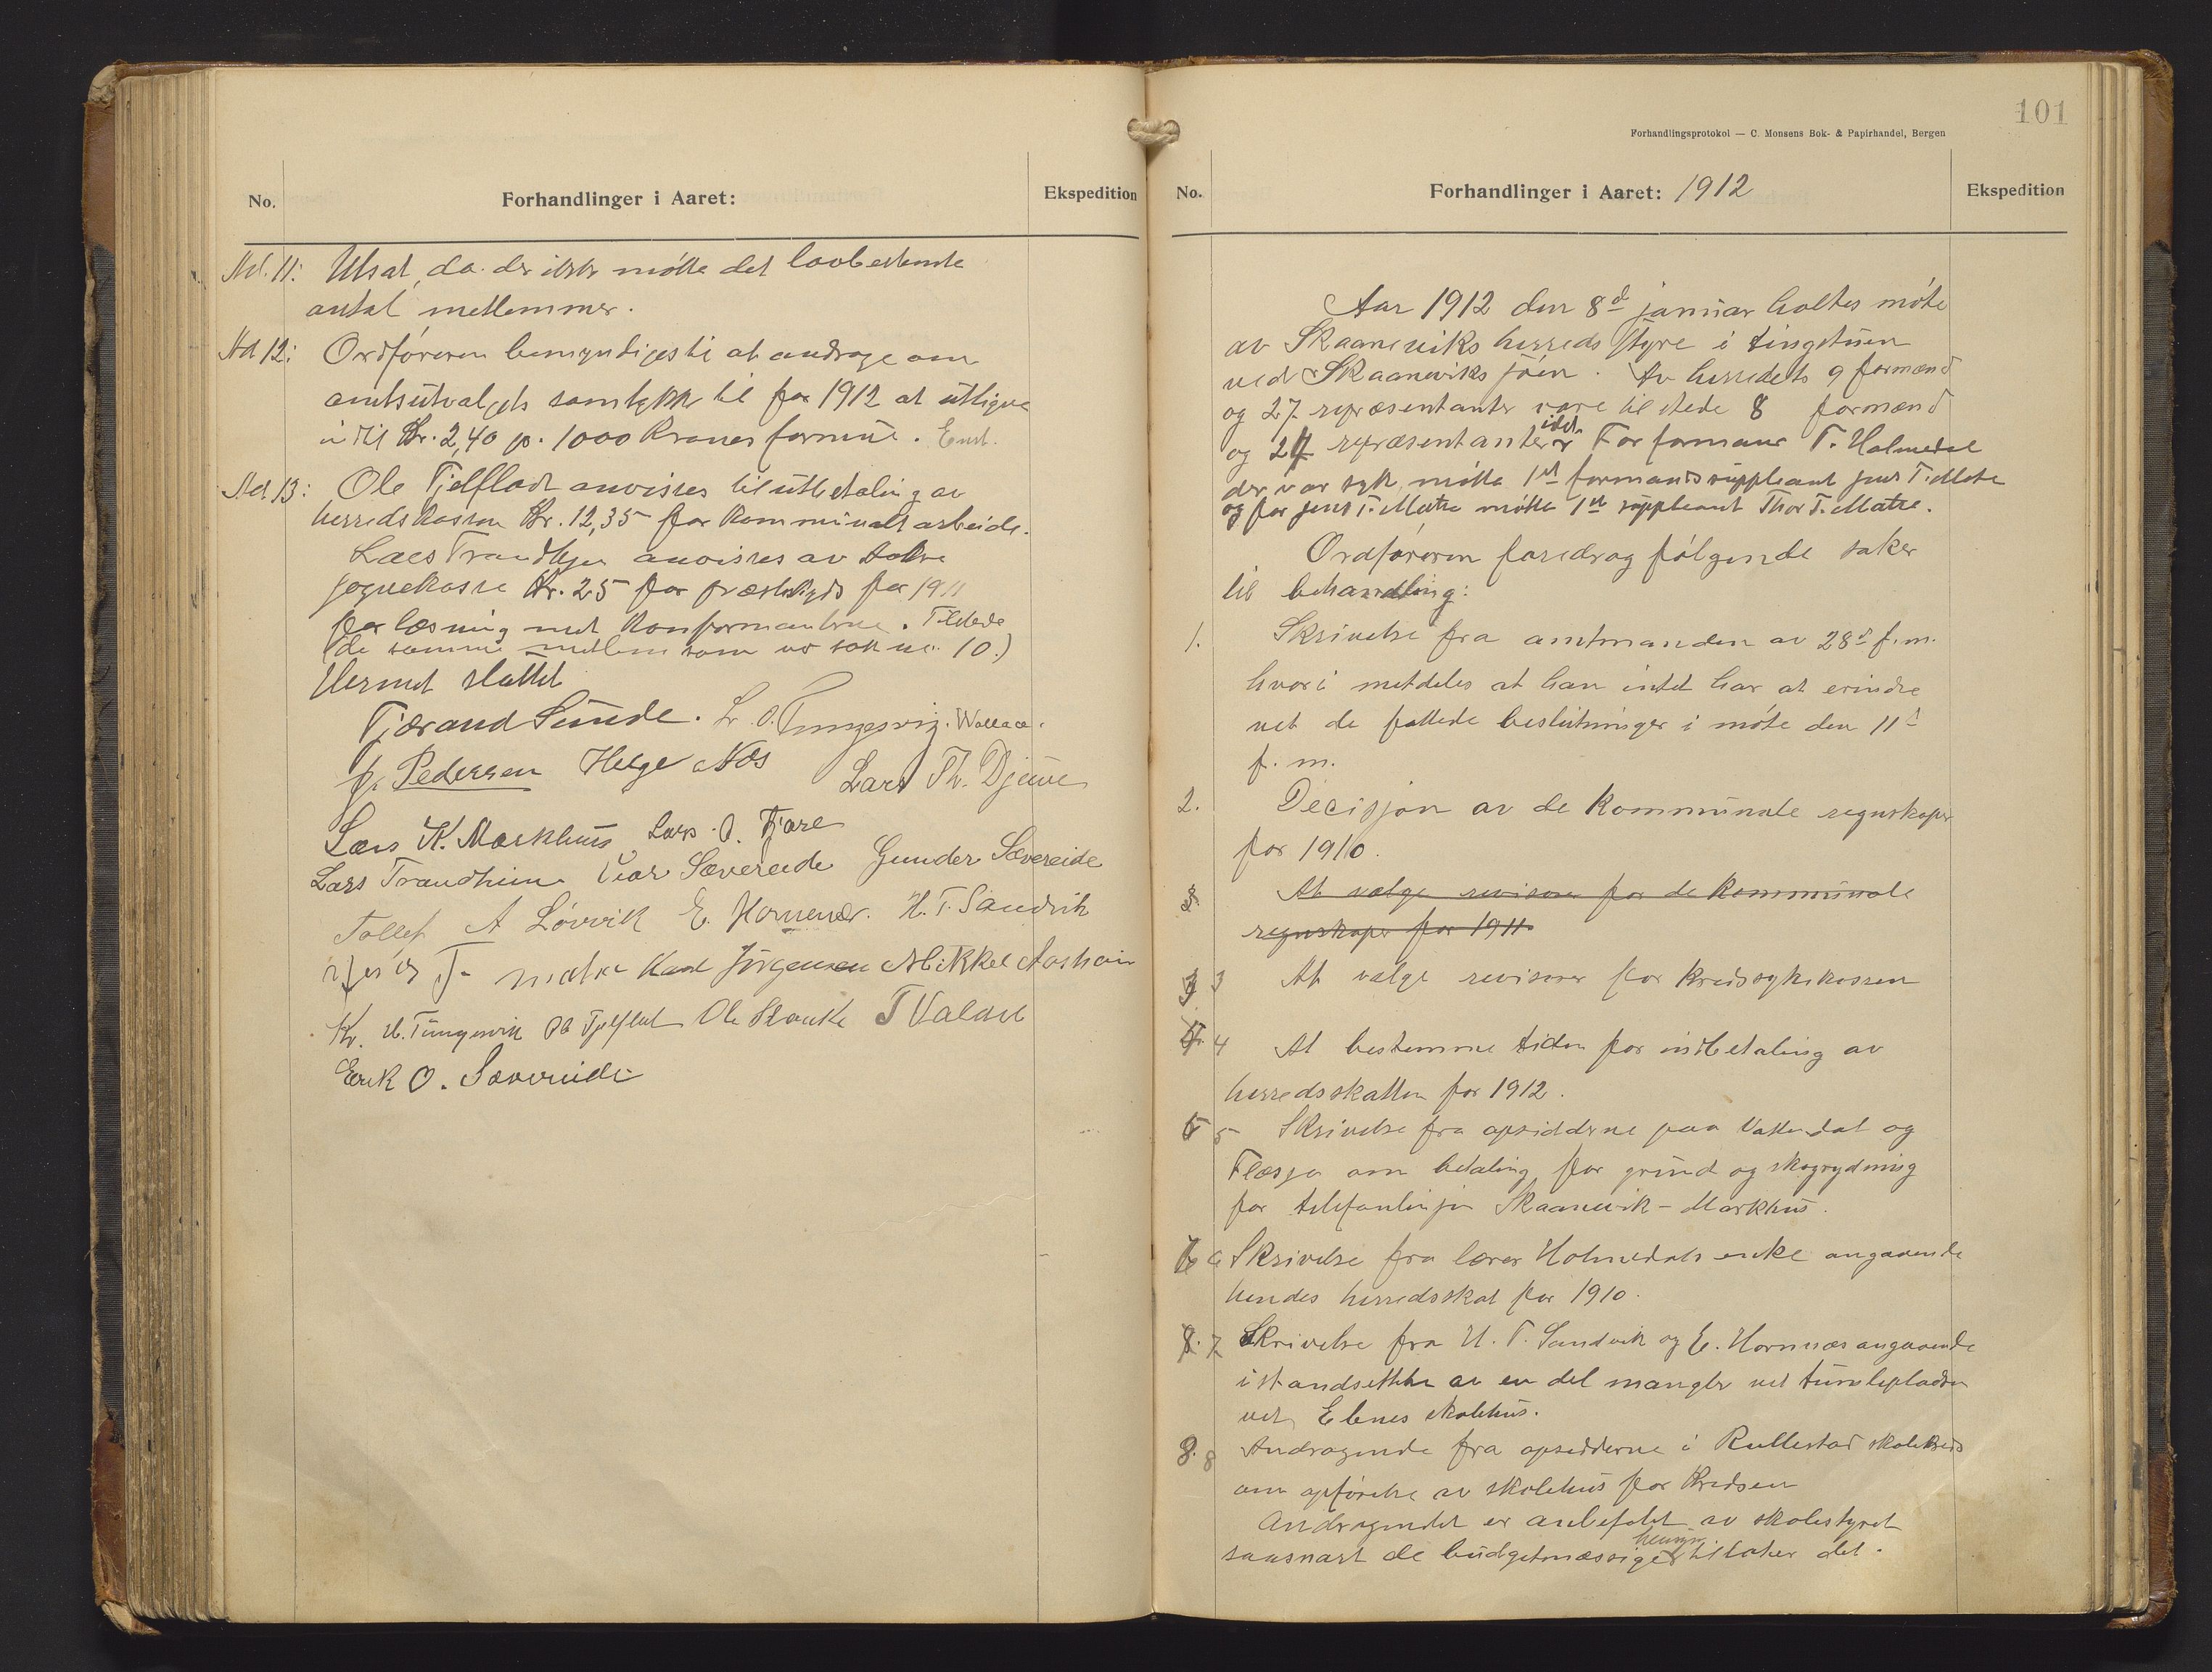 No. Forhandlinger i Aaret: Ekspedition
Ad. 11: Utsat, da der ikke møtte det lovbestemte
antal medlemmer.
Ad 12: Ordføreren bemyndiges til at andrage om
amtsutvalgets samtykke til for 1912 at utligne
indtil Kr. 2,40 pr. 1000 Kroners formue. Enst.
Ad. 13: Ole Tjelflaat anvises til utbetaling av
herredskassen Kr. 12,35 for kommunalt arbeide.
Lars Trandheim anvises av
sognekasse Kr. 25 for for 1911
for læsning med konfirmanterne. Tilstede
(de samme medlem som ve sak nr. 10.)
Hermed sluttet
Tjærand Sunde. L. O. Tungesvig. Wallace.
P. Pedersen Helge Næs Lars Th. Djuve
Lars K. Markhus Lars O. Fjære
Lars Trandheim Ivar Sævereide Gunder Sævereide
Tollef A Løvvik E. Hornenes. H. T. Sandvik
Jens T. Matre Karl Jørgensen Mikkel Aasheim
Kr. H. Tungesvik Ole Tjelflat Ole Skauke T Valand
Eerik O. Sævereide
101
Forhandlingsprotokol — C. Monsens Bok- & Papirhandel, Bergen
No. Forhandlinger i Aaret: 1912 Ekspedition
Aar 1912 den 8d januar holtes møte
av Skaaneviks herredsstyre i tingstuen
ved Skaanevikssjøen. Av herredets 9 formænd
og 27 repræsentanter vare tilstede 8 formænd
og 24 repræsentanter idet For formand T. Holmedal
der var syk, møtte 1st formandssuppleant Jens T. Matre
og for Jens T. Matre møtte 1st suppleant Thor T. Matre.
Ordføreren foredrog følgende saker
til behandling:
1. Skrivelse fra amtmanden av 28d f.m.
hvori meddeles at han intet har at erindre
ved de fattede beslutninger i møte den 11d
f. m.
2. Decisjon av de kommunale regnskaper
for 1910.
3. At vælge revisorer for de kommunale
regnskaper for 1911.
3 At vælge revisorer for kredssykekassen
4 At bestemme tiden for indbetaling av
herredsskatten for 1912.
6 5 Skrivelse fra opsidderne paa Vattendal og
Flæsjo om betaling for grund og skogrydning
for telefonlinjen Skaanevik – Markhus.
6 Skrivelse fra lærer Holmedals enke angaaende
hendes herredsskat for 1910.
8. 7 Skrivelse fra H. T. Sandvik og E. Hornnæs angaaende
istandsettelse av en del mangler ved tumlepladsen
ved Ebnes skolehus.
8. 8 Andragende fra opsidderne i Rullestad skolekreds
om opførelse av skolehus for kredsen
Andragendet er anbefalet av skolestyret
saasnart de budgetmæssige hensyn tillater det.